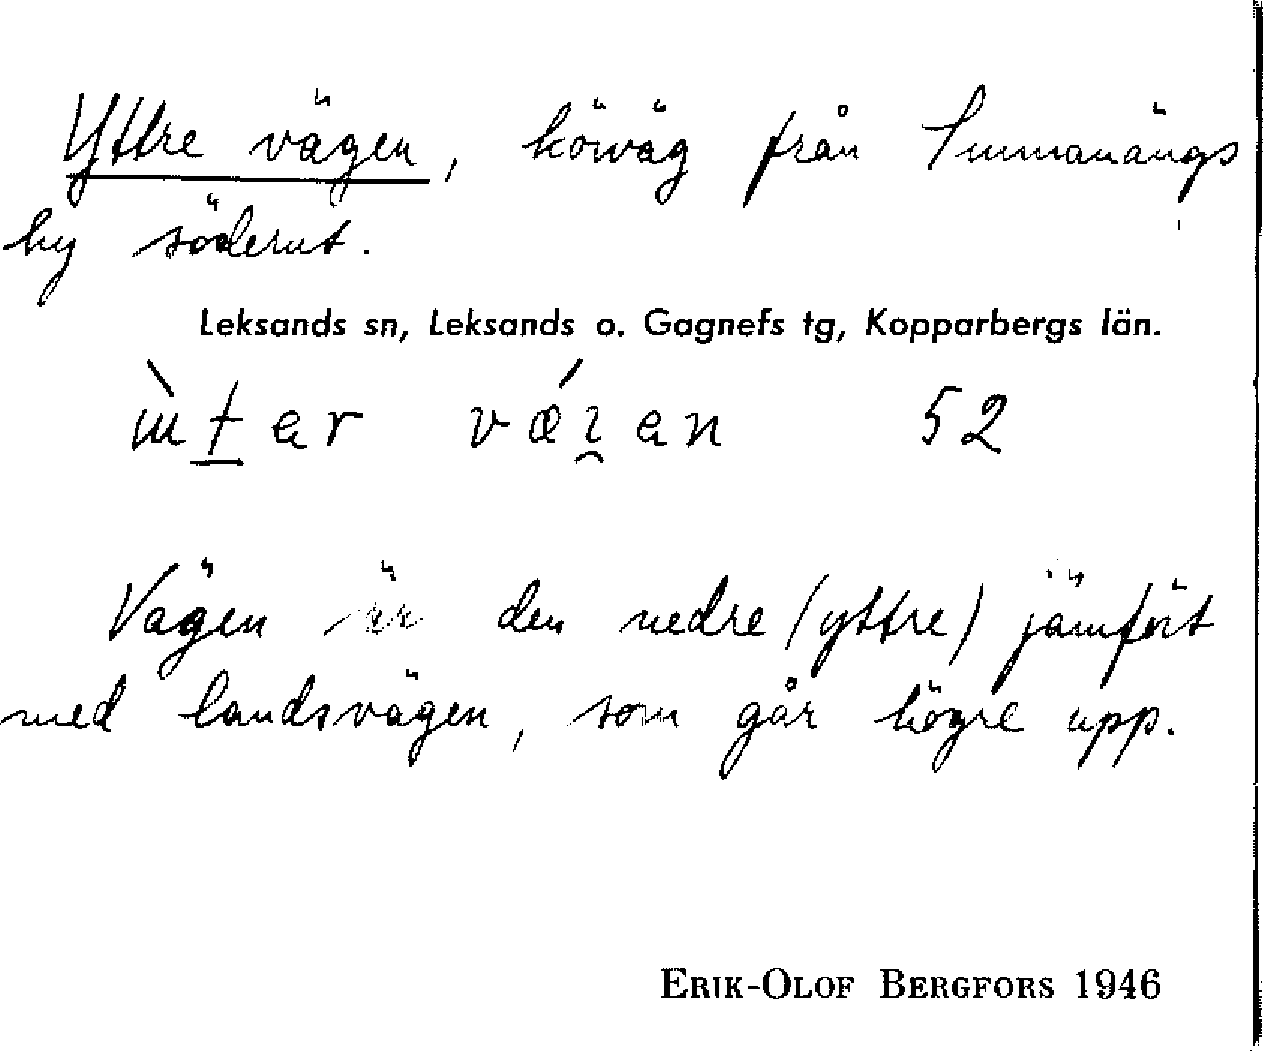 Yttre vägen, körväg från Sunnanängs
by söderut.
Leksands sn, Leksands o. Gagnefs tg, Kopparbergs län.
52
Vägen är den nedre (yttre) jämfört
med landsvägen, som går högre upp.
ERIK-OLOF BERGFORS 1946